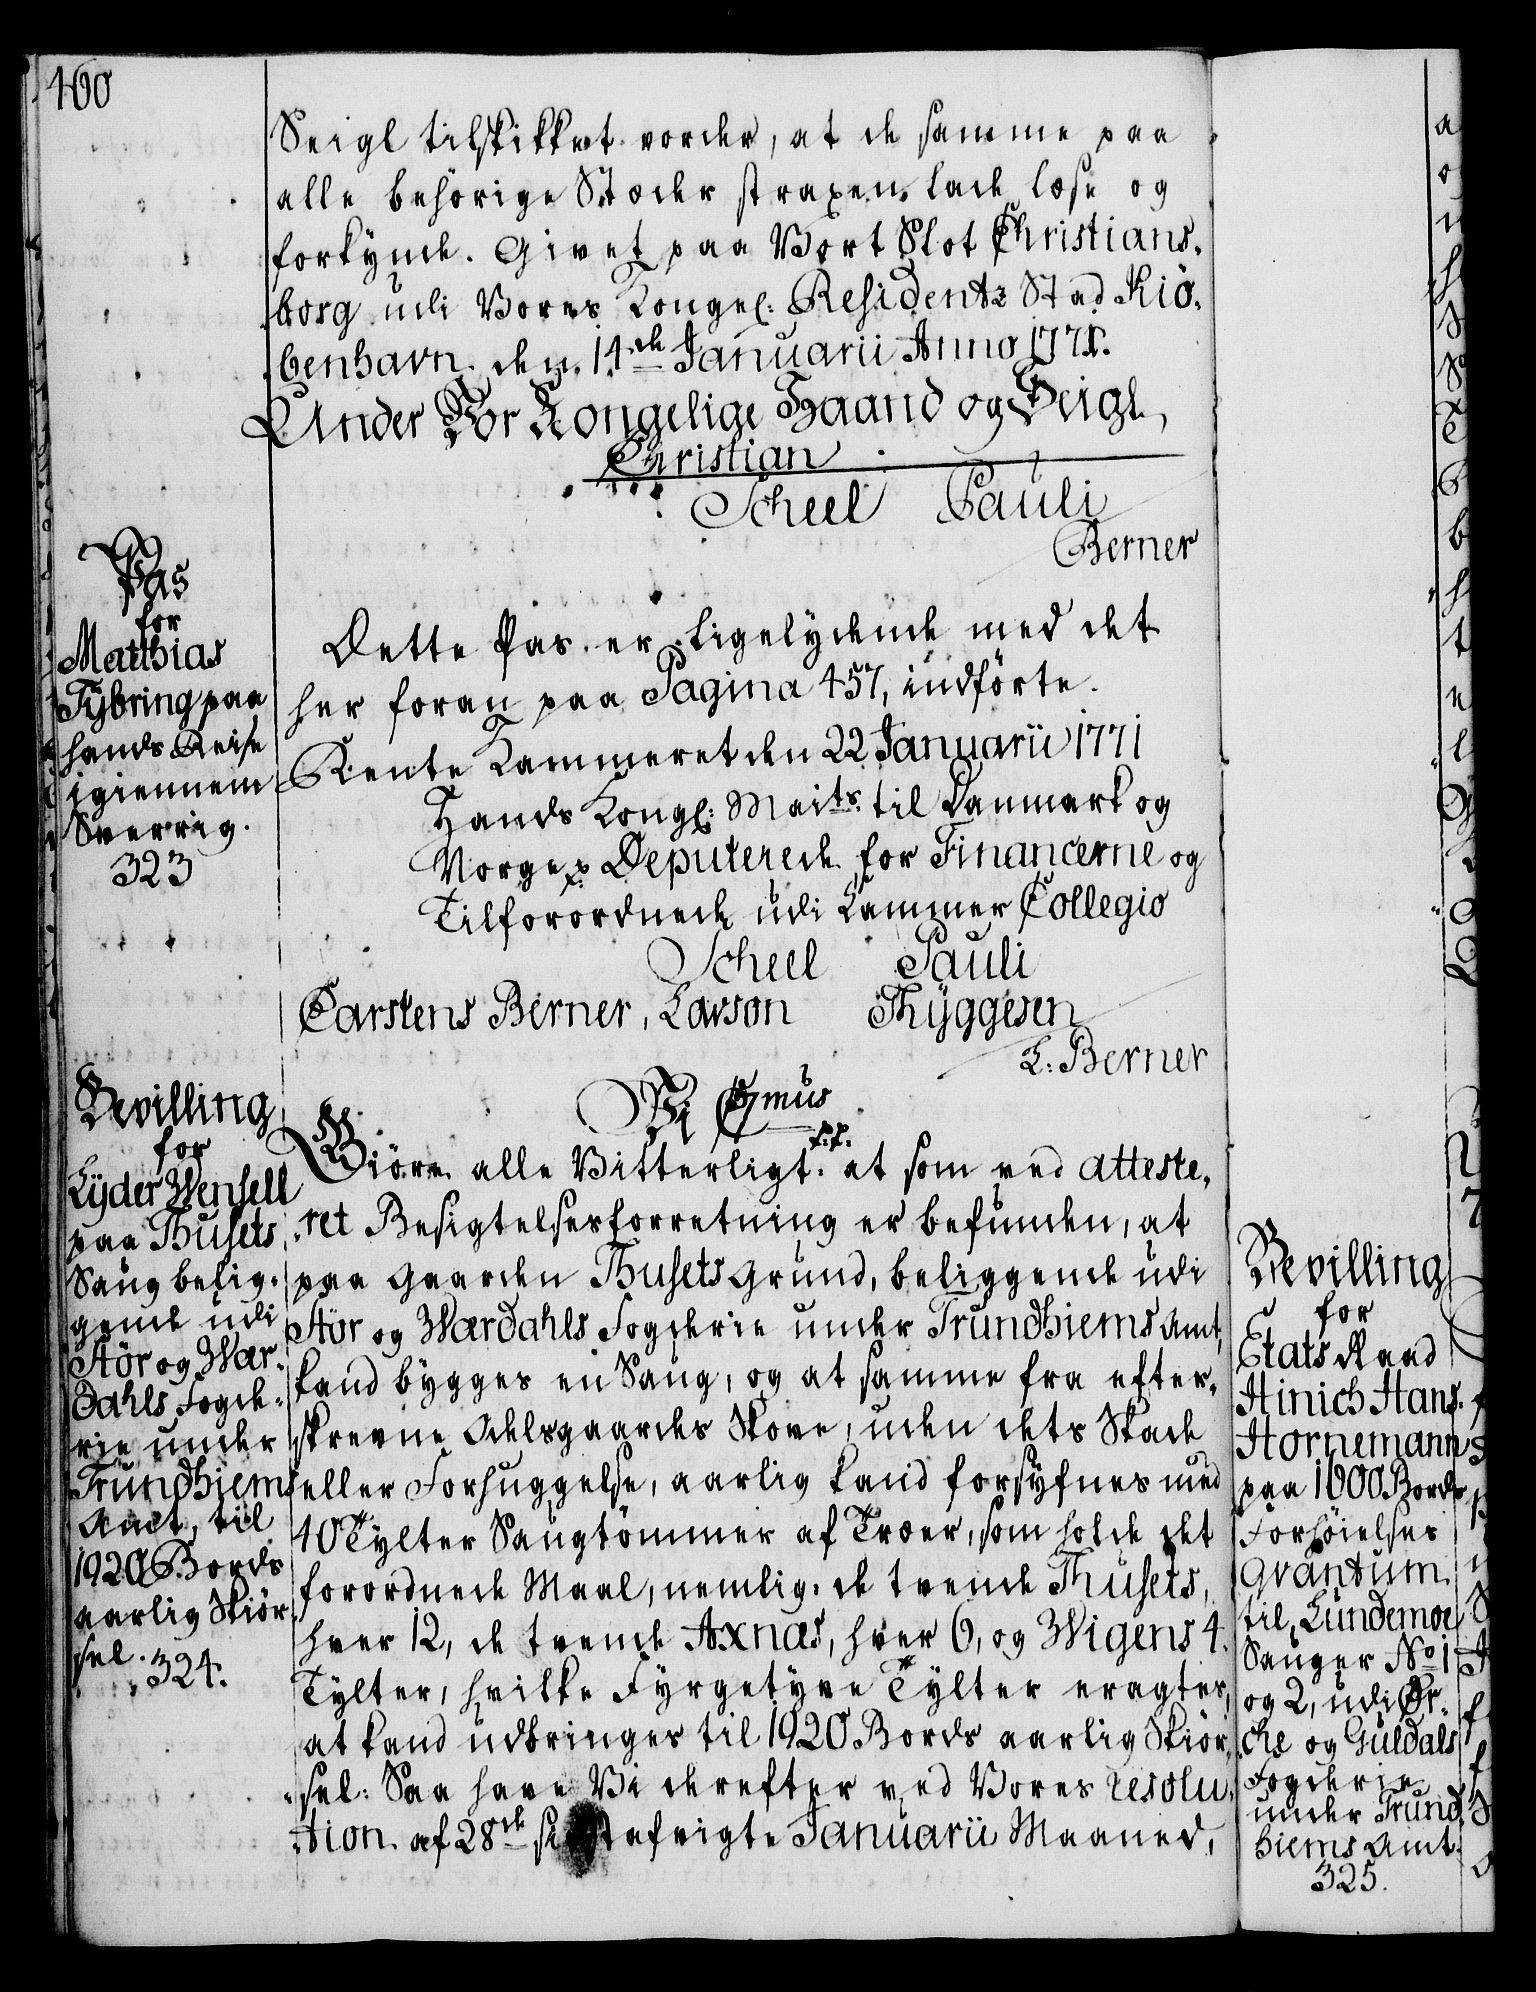 460
Seigl tilskikket vorder, at de samme paa
alle behörige Stæder straxen lade læse og
forkynde. Givet paa Vort Slot Christians-
borg udi Vores Kongel: Residentz Stad Kiö-
benhavn den 14de Januarii Anno 1771.
Under Vor Kongelige Haand og Seigl,
Christian
Scheel Pauli
Berner
Pas
for
Matthias
Tybring paa
hands Reise
igiennem
Sverrig.
323
Dette Pas er ligelydende med det
her foran paa Pagina 457, indförte.
Rente Kammeret den 22 Januarii 1771
Hands Kongl: Maits til Danmark og
Norge p Deputerede for Financerne og
Tilforordnede udi Kammer Collegio
Scheel Pauli
Carstens Berner, Lawson Thyggesen
L: Berner
Bevilling
for
Lyder Wensell
paa Thusets
Saug belig-
gende udi
Stör og Wær-
dahls Fogde-
rie under
Trundhiems
Amt, til
1920 Bords
aarlig Skiör-
sel.
324.
Vi C7mus
p.p.
Giöre alle Vitterligt: at som ved atteste-
ret Besigtelsesforretning er befunden, at
paa Gaarden Thusets Grund, beliggende udi
Stör og Wærdahls Fogderie under Trundhiems Amt,
kand bygges en Saug, og at samme fra efter-
skrevne Odelsgaardes Skove, uden dets Skade
eller Forhuggelse, aarlig kand forsyfnes med
40 Tylter Saugtömmer af Træer, som holde det
forordnede Maal, nemlig: de tvende Thusets,
hver 12, de tvende Axnæs, hver 6, og Wigens 4
Tylter, hvilke Fyrgetyve Tylter eragtes,
at kand udbringes til 1920 Bords aarlig Skiör-
sel: Saa have Vi derefter ved Vores resolu-
tion af 28de sidstafvigte Januarii Maaned,
Bevilling
for
Etats Raad
Hinich Hans
Hornemann
paa 1000 Bords
Forhöielses
Qvantum
til Lundemoe
Sauger No 1
og 2, udi Or-
che og Guldals
Fogderie
under Trund-
hiems Amt.
325.